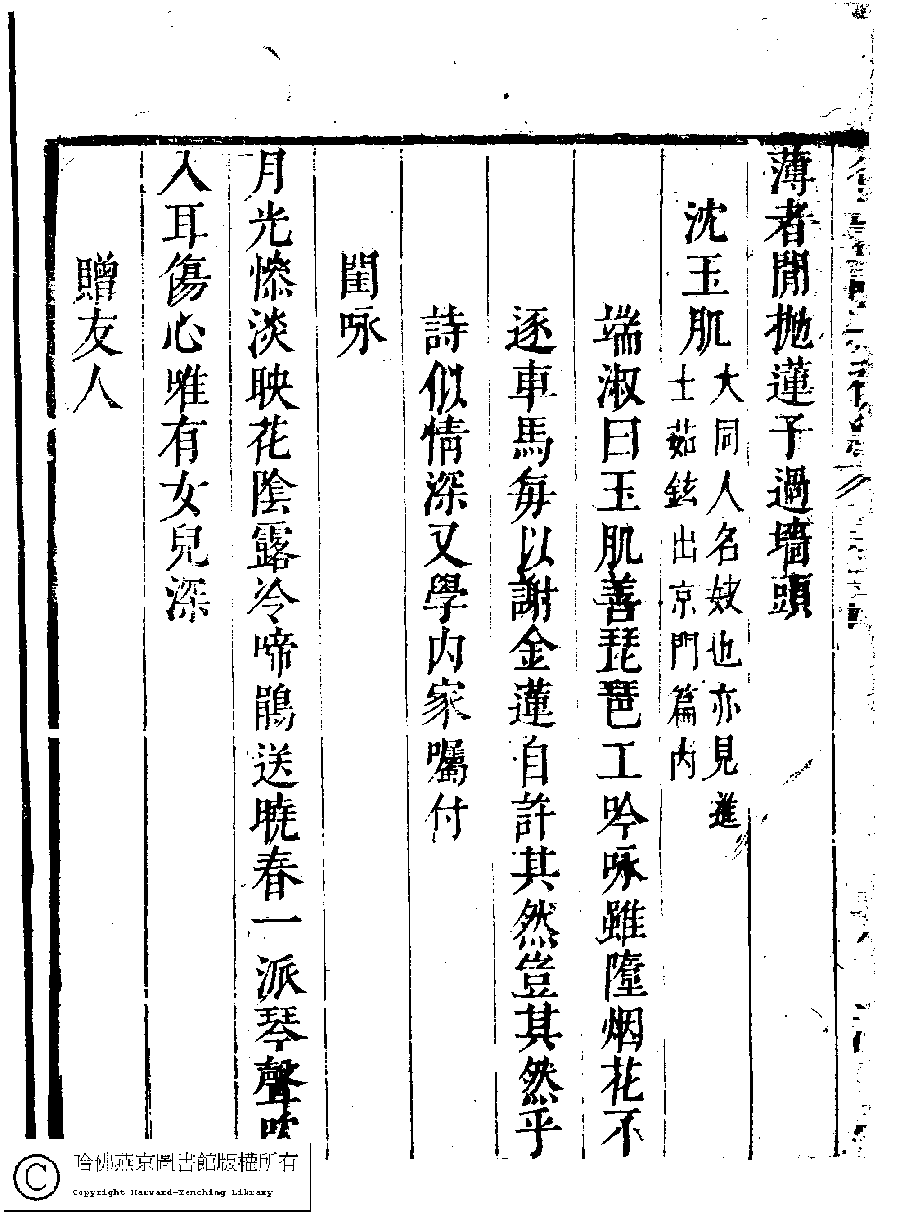 薄者閒抛蓮子過墻頭
沈玉肌
大同人名妓也亦見進
士茹鉉出京門篇内
端淑曰玉肌善琵琶工吟咏雖墮烟花不
逐車馬每以謝金蓮自許其然豈其然乎
詩似情深又學内家囑付
閨咏
月光慘淡映花陰露冷啼鵑送曉春一派琴聲吹
入耳傷心唯有女兒深
贈友人
哈佛燕京圖書館版權所有
Copyright Harvard-Yenching Library